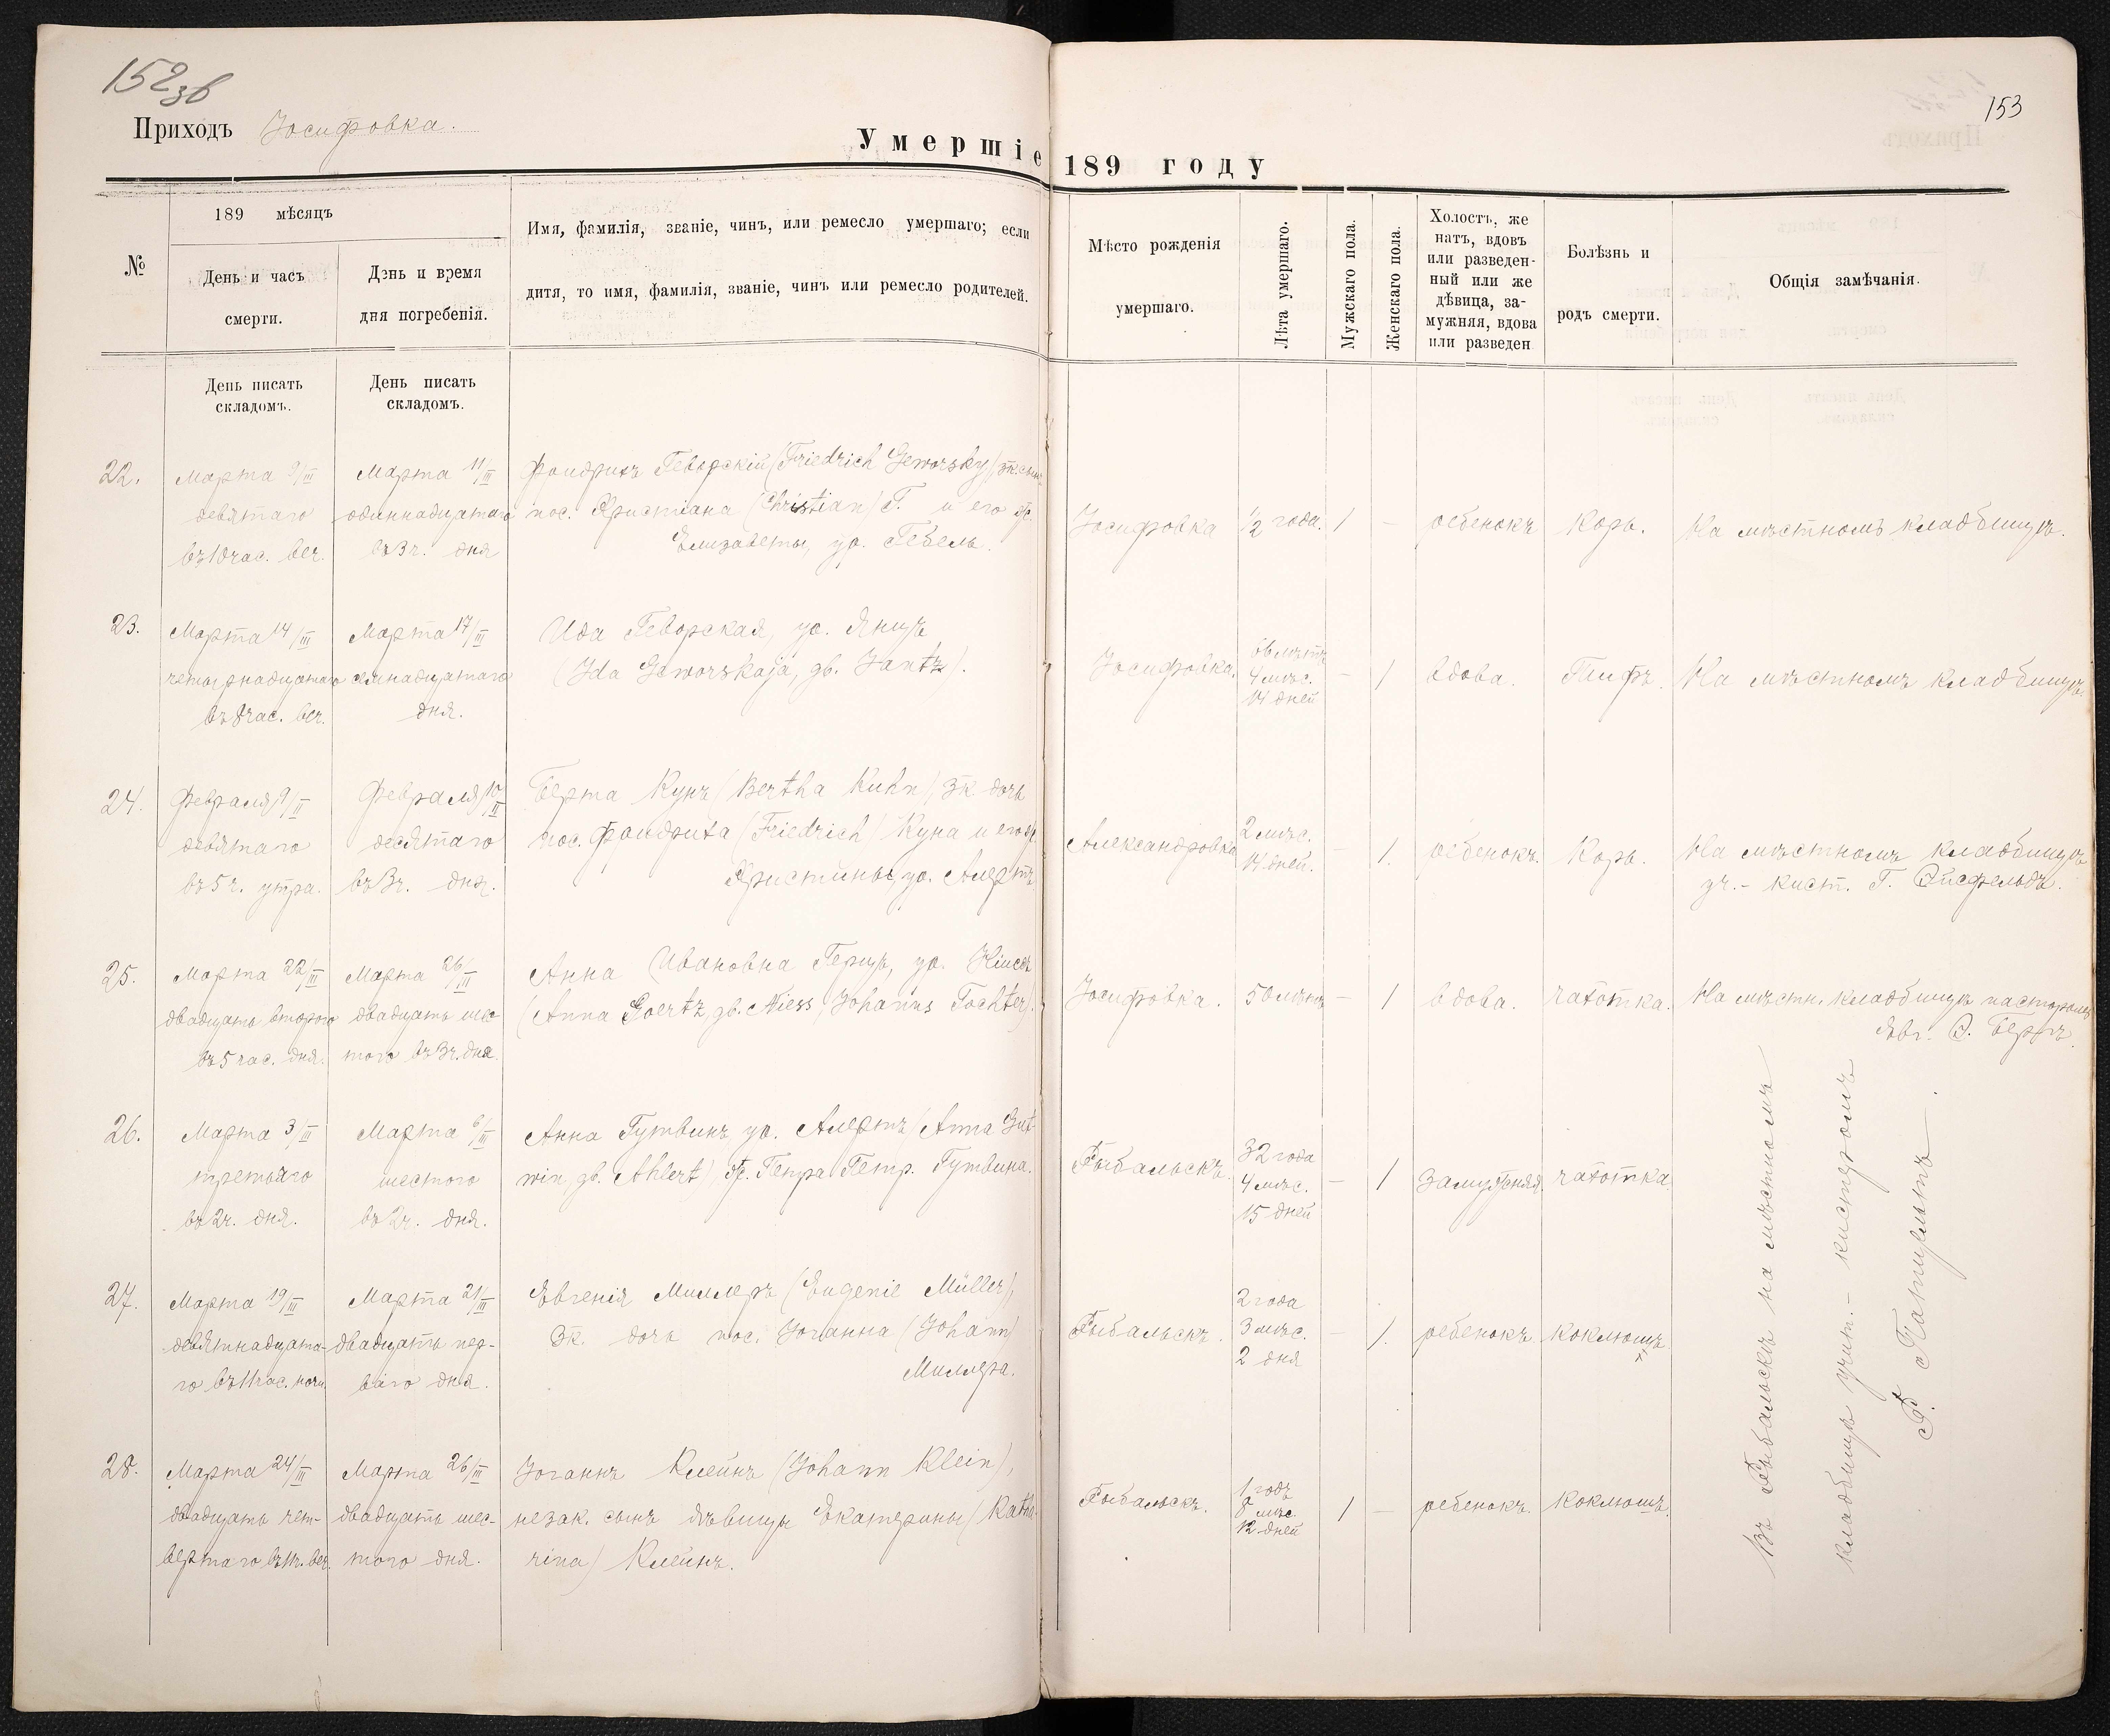 152 зв
153
Приходъ Іосифовка.
Умершіе 189 году
№
189 мѣсяцъ
День и часъ смерти.
День и время дня погребенія.
Имя, фамилія, званіе, чинъ, или ремесло умершаго; если
дитя, то имя, фамилія, званіе, чинъ или ремесло родителей.
Мѣсто рожденія умершаго.
Лѣта умершаго.
Мужскаго пола.
Женскаго пола.
Холостъ, же
натъ, вдовъ
или разведен-
ный или же
дѣвица, за-
мужняя, вдова
или разведен
Болѣзнь и родъ смерти.
Общія замѣчанія.
День писать складомъ.
День писать складомъ.
22.
Марта 9/III
девятаго
въ 10 час. веч.
Марта 11/III
одиннадцатаго
въ 3 ч. дня
Фридрихъ Геворскій (Friedrich Geworsky), зк. сынъ
пос. Христіана (Christian) Г. и его ж.
Елизаветы, ур. Гебель.
Іосифовка
1/2 года.
1
-
ребенокъ
Корь.
На мѣстномъ кладбищѣ.
23.
Марта 14/III
четырнадцатаго
въ 8 час. веч.
Марта 17/III
семнадцатаго
дня.
Ида Геворская, ур. Янцъ
(Ida Geworskaja, gb. Jantz).
Іосифовка.
66 лѣтъ
4 мѣс.
14 дней
-
1
вдова.
Тифъ.
На мѣстномъ кладбищѣ.
24.
Февраля 9/II
девятаго
въ 5 ч. утра.
Февраля 10/II
десятаго
въ 3 ч. дня.
Берта Кунъ (Bertha Kuhn), зк. дочь
пос. Фридриха (Friedrich) Куна и его ж.
Христины, ур. Алертъ
Александровка
2 мѣс.
14 дней.
-
1.
ребенокъ.
Корь.
На мѣстномъ кладбищѣ
уч.-кист. Г. Эйсфельдъ.
25.
Марта 22/III
двадцать второго
въ 5 час. дня.
Марта 26/III
двадцать шес
того въ 3 ч. дня.
Анна Ивановна Герцъ, ур. Нисъ
(Anna Goertz, gb. Niess, Johanns Tochter).
Іосифовка.
50 лѣтъ
-
1
вдова.
чахотка.
На мѣстн. кладбищѣ пасторомъ
Явг. Э. Бергъ.
26.
Марта 3/III
третьяго
въ 2 ч. дня.
Марта 6/III
шестого
въ 2 ч. дня.
Анна Гутвинъ, ур. Алертъ (Anna Gut-
win, gb. Ahlert), ж. Петра Петр. Гутвина.
Рыбальскъ.
32 года
4 мѣс.
15 дней
-
1
замужняя.
чахотка.
27.
Марта 19/III
девятнадцата-
го въ 11 час. ночи
Марта 21/III
двадцать пер-
ваго дня.
Евгенія Миллеръ (Eugenie Müller),
зк. дочь пос. Іоганна (Johann)
Миллера.
Рыбальскъ.
2 года
3 мѣс.
2 дня
-
1.
ребенокъ
коклюшъ
28.
Марта 24/III
двадцать чет-
вертаго въ 11 ч. веч.
Марта 26/III
двадцать шес-
того дня.
Іоганнъ Клейнъ (Johann Klein),
незак. сынъ дѣвицы Екатерины (Katha-
rina) Клейнъ.
Рыбальскъ.
1 годъ
8 мѣс.
12 дней
1
-
ребенокъ.
коклюшъ.
Въ Рыбальскѣ на мѣстномъ
кладбищѣ учит.-кистеромъ